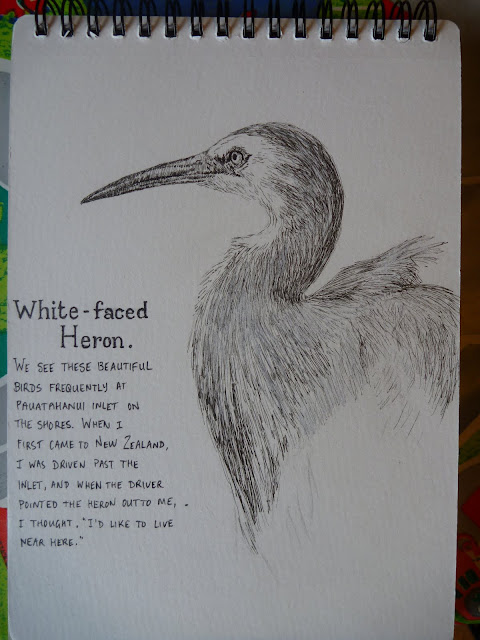 White-faced
Heron.
WE SEE THESE BEAUTIFUL
BIRDS FREQUENTLY AT
PAUATAHANUI INLET ON
THE SHORES. WHEN I
FIRST CAME TO NEW ZEALAND,
I WAS DRIVEN PAST THE
INLET, AND WHEN THE DRIVER
POINTED THE HERON OUT TO ME,
I THOUGHT. "I'D LIKE TO LIVE
NEAR HERE."